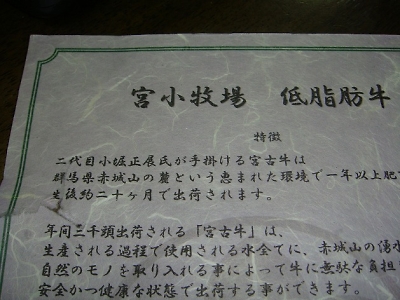 宮小牧場 低脂肪牛
特徴
二代目小堀正展氏が手掛ける宮古牛は
群馬県赤城山の麓という恵まれた環境で一年以上肥
生後約二十ヶ月で出荷されます。
年間三千頭出荷される「宮古牛」は、
生産される過程で使用される水全てに、赤城山の湧水
自然のモノを取り入れる事によって牛に無駄な負担
安全かつ健康な状態で出荷する事ができます。